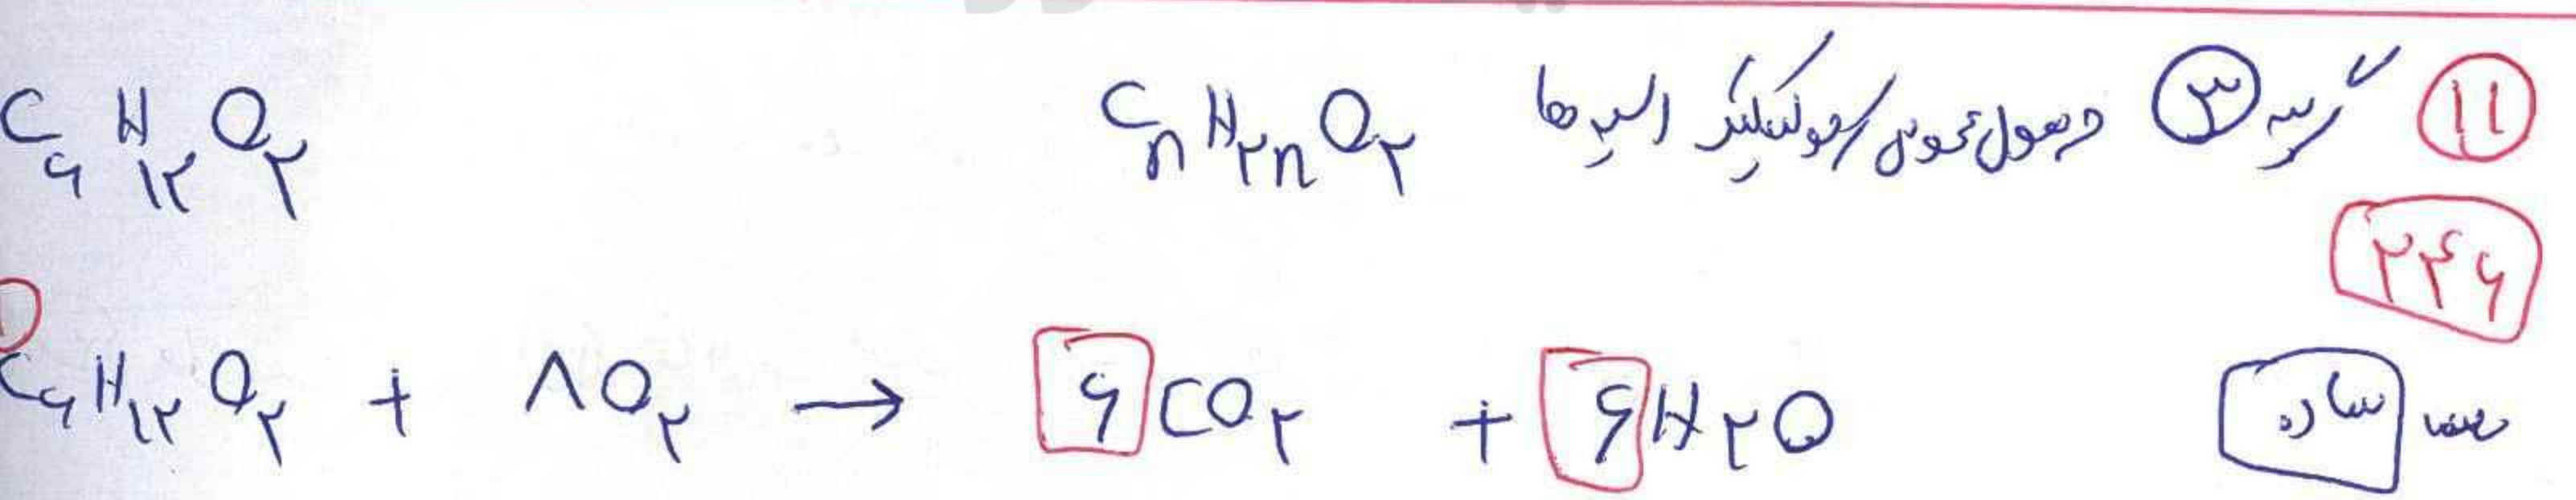 ۱۱ گزینه ۳ فرمول عمومی کربوکسیلیک اسیدها CnH۲nO۲ C۶H۱۲O۲
۲۴۶
C۶H۱۲O۲ + ۸O۲ → ۶CO۲ + ۶H۲O
ساده